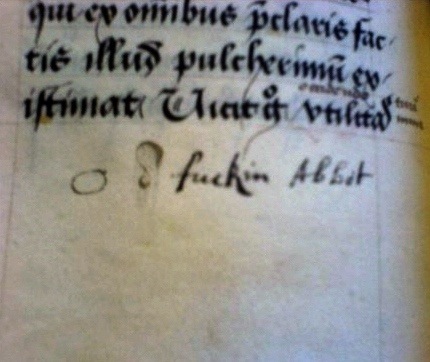 qui ex omnibus p̄claris fac-
tis illud pulcherimū ex-
istimat Vicit g̊ utilitas
O d fuckin Abbot